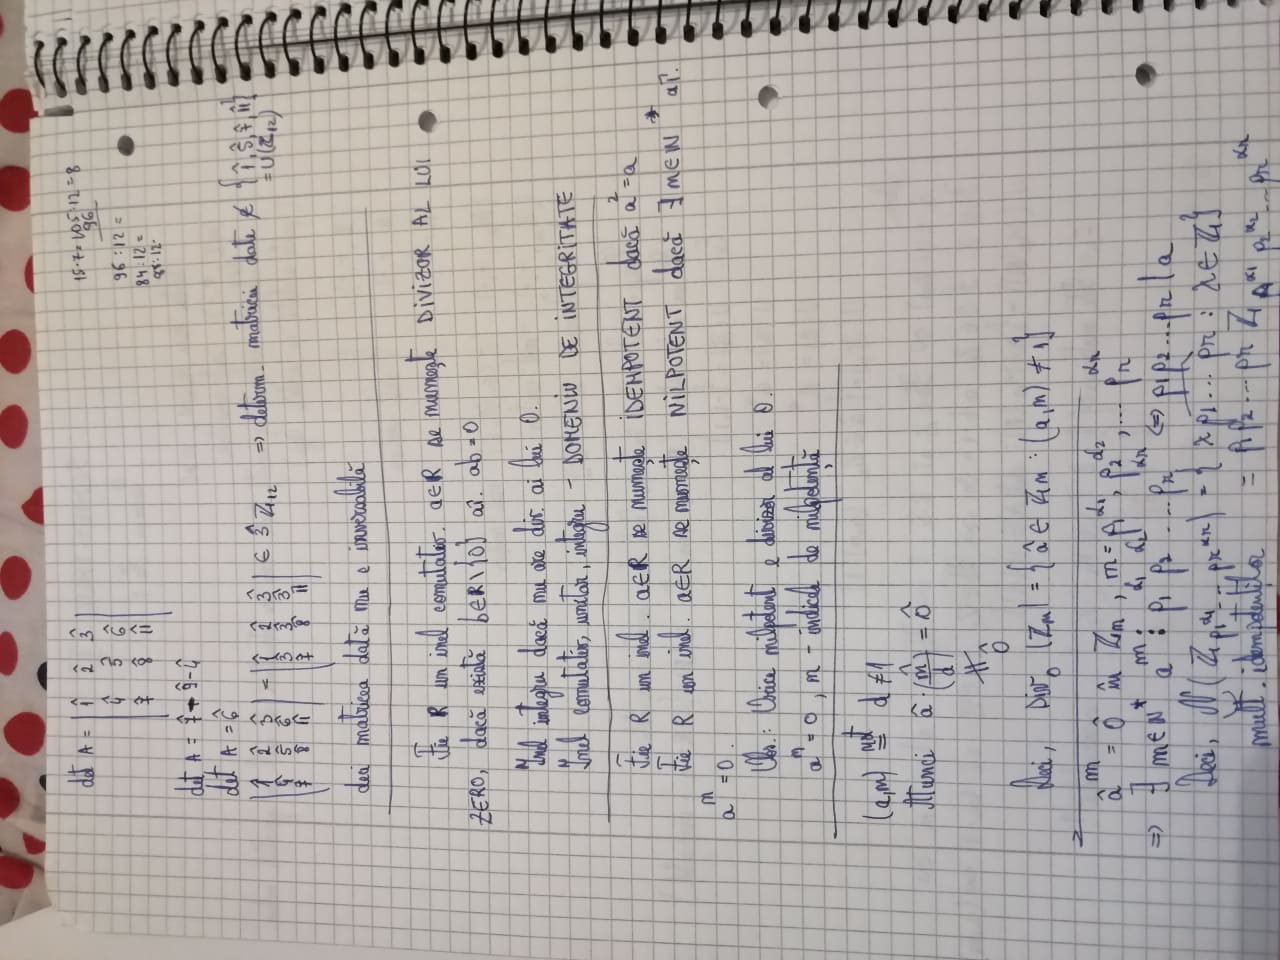 15·7=105:12=8
96
96:12=
84:12=
det A = | 1̂ 2̂ 3̂ |
| 4̂ 5̂ 6̂ |
| 7̂ 8̂ 11̂ |
det A = 7̂ + 9̂ - 4̂
det A = 6̂
| 1̂ 2̂ 3̂ | = | 1̂ 2̂ 3̂ | ∈ 3̂ ℤ₁₂ ⇒ determ. matricii date ∉ {1̂, 5̂, 7̂, 11̂}
| 4̂ 5̂ 6̂ | | 3̂ 3̂ 3̂ | = U(ℤ₁₂)
| 7̂ 8̂ 11̂ | | 7̂ 8̂ 11̂ |
deci matricea dată nu e inversabilă
Fie R un inel comutativ. a∈R se numește DIVIZOR AL LUI
ZERO, dacă există b∈R\{0} aî. ab=0
"Inel integru dacă nu are div. ai lui 0.
"Inel comutativ, unitar, integru - DOMENIU DE INTEGRITATE
Fie R un inel. a∈R se numește IDEMPOTENT dacă a²=a
Fie R un inel. a∈R se numește NILPOTENT dacă ∃ m∈ℕ* aî.
aᵐ=0.
Obs.: Orice nilpotent e divizor al lui 0.
aᵐ=0, m - indice de nilpotență
(a,m) not= d≠1
Atunci â·(m̂/d) = 0̂
≠ 0̂
Deci, Div₀(ℤm) = {â ∈ ℤm : (a,m) ≠ 1}
âᵐ = 0̂ în ℤm, m = p₁^α₁, p₂^α₂, ... pr^αr
⇒ ∃ m∈ℕ* aᵐ ⋮ p₁^α₁ p₂^α₂ ... pr^αr ⇔ p₁p₂...pr | a
Deci, N(ℤ p₁^α₁...pr^αr) = {λ p₁...pr : λ∈ℤ}
mult. idempotenților = p₁p₂...pr ℤ p₁^α₁ p₂^α₂...pr^αr